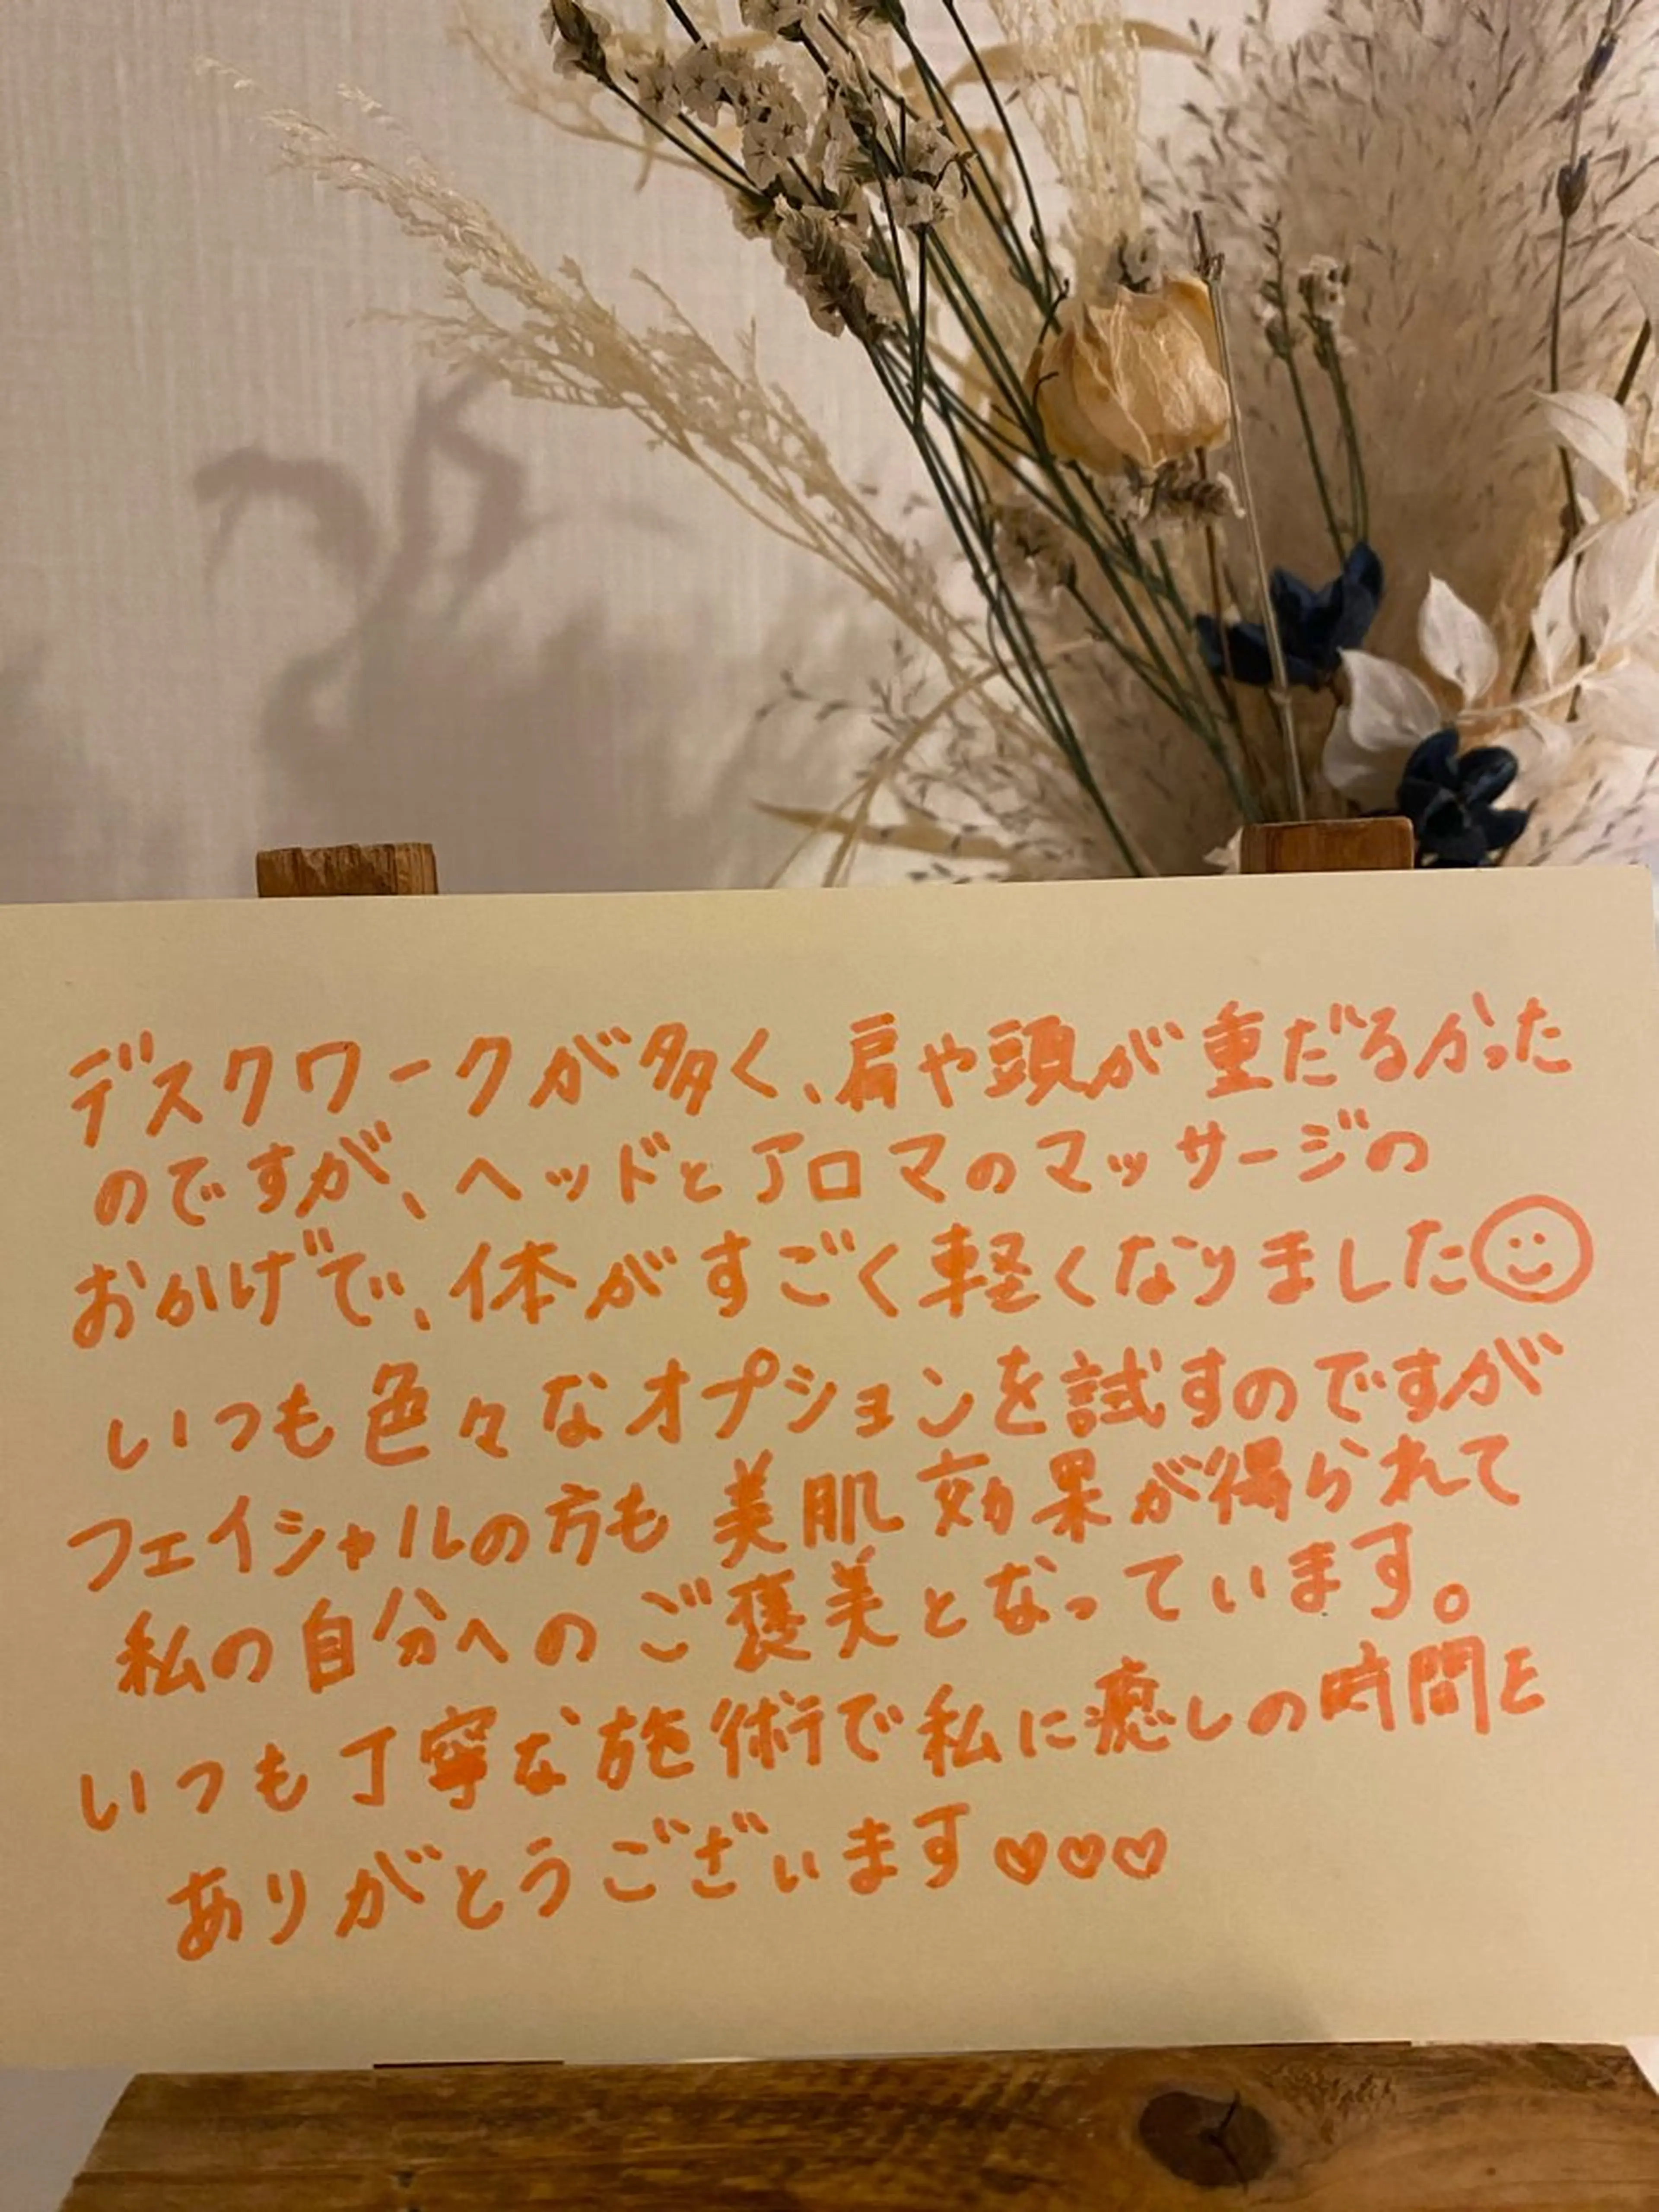 デスクワークが多く、肩や頭が重だるかった
のですが、ヘッドとアロマのマッサージの
おかげで、体がすごく軽くなりました☺
いつも色々なオプションを試すのですが
フェイシャルの方も美肌効果が得られて
私の自分へのご褒美となっています。
いつも丁寧な施術で私に癒しの時間を
ありがとうございます♡♡♡